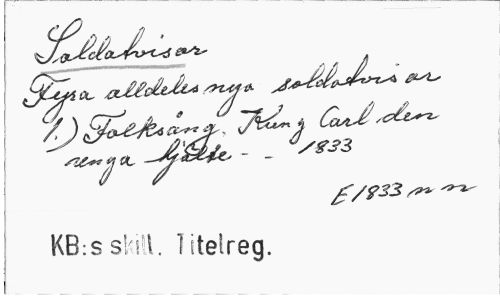 Soldatvisor
Fyra alldeles nya soldatvisor
1.) Folksång. Kung Carl den
unga hjälte - - 1833
E 1833 nn
KB:s skill. Titelreg.